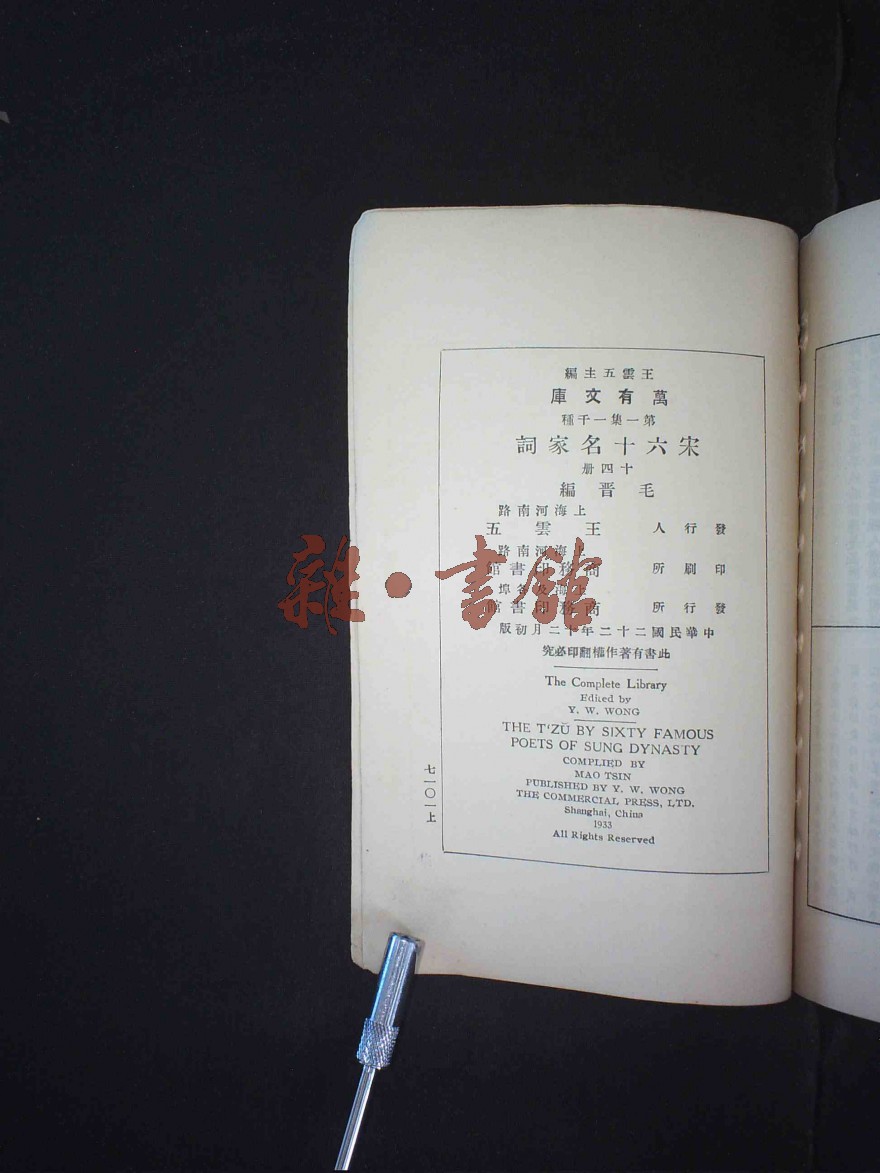 王雲五主編
萬有文庫
第一集一千種
宋六十名家詞
十四册
毛晋編
上海河南路
發行人 王雲五
上海河南路
印刷所 商務印書館
上海及各埠
發行所 商務印書館
中華民國二十二年十二月初版
此書有著作權翻印必究
The Complete Library
Edited by
Y. W. WONG
THE T'ZŬ BY SIXTY FAMOUS
POETS OF SUNG DYNASTY
COMPLIED BY
MAO TSIN
PUBLISHED BY Y. W. WONG
THE COMMERCIAL PRESS, LTD.
Shanghai, China
1933
All Rights Reserved
七一〇一上
雜·書館